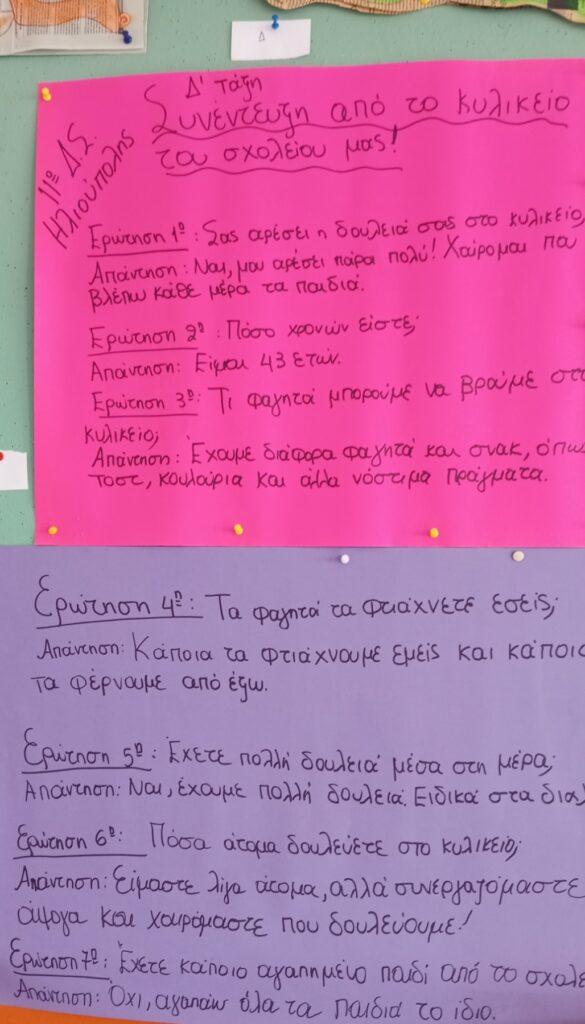 Δ
Δ' τάξη
11º Δ.Σ.
Ηλιούπολης
Συνέντευξη από το κυλικείο
του σχολείου μας!
Ερώτηση 1η: Σας αρέσει η δουλειά σας στο κυλικείο;
Απάντηση: Ναι, μου αρέσει πάρα πολύ! Χαίρομαι που
βλέπω κάθε μέρα τα παιδιά.
Ερώτηση 2η: Πόσο χρονών είστε;
Απάντηση: Είμαι 43 ετών.
Ερώτηση 3η: Τι φαγητά μπορούμε να βρούμε στο
κυλικείο;
Απάντηση: Έχουμε διάφορα φαγητά και σνακ, όπως
τοστ, κουλούρια και άλλα νόστιμα πράγματα.
Ερώτηση 4η: Τα φαγητά τα φτιάχνετε εσείς;
Απάντηση: Κάποια τα φτιάχνουμε εμείς και κάποια
τα φέρνουμε από έξω.
Ερώτηση 5η: Έχετε πολλή δουλειά μέσα στη μέρα;
Απάντηση: Ναι, έχουμε πολλή δουλειά. Ειδικά στα
Ερώτηση 6η: Πόσα άτομα δουλεύετε στο κυλικείο;
Απάντηση: Είμαστε λίγα άτομα, αλλά συνεργαζόμαστε
άψογα και χαιρόμαστε που δουλεύουμε!
Ερώτηση 7η: Έχετε κάποιο αγαπημένο παιδί από το
Απάντηση: Όχι, αγαπάω όλα τα παιδιά το ίδιο.